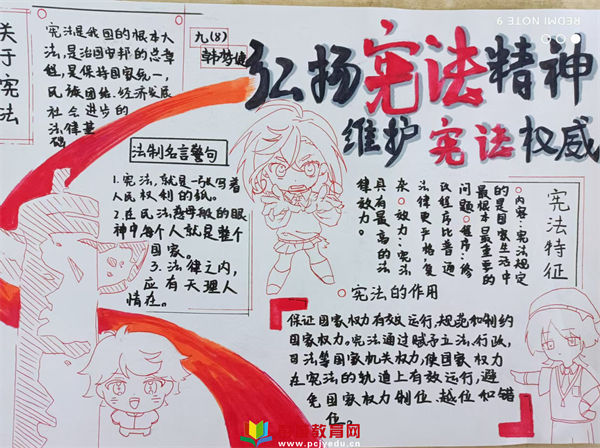 弘扬宪法精神
维护宪法权威
九(8)
关于宪法
宪法是我国的根本大
法,是治国安邦的总章
程,是保持国家统一,
民族团结、经济发展
社会进步的
法律基
础
法制名言警句
1.宪法,就是一张写着
人民权利的纸。
2.在民法慈母般的眼
神中,每个人就是整个
国家。
3.法律之内,
应有天理人
情在。
宪法特征
○内容:宪法规定
的是国家生活中
最根本最重要的
问题○程序:修
改程序比普通
法律更严格,复
杂○效力:宪法
具有最高的法
律效力。
○宪法的作用
保证国家权力有效运行,规范和制约
国家权力。宪法通过赋予立法,行政,
司法等国家机关权力,使国家权力
在宪法的轨道上有效运行,避
免国家权力制缺、越位和错
位
REDMI NOTE 9
教育网
www.pcjyedu.cn